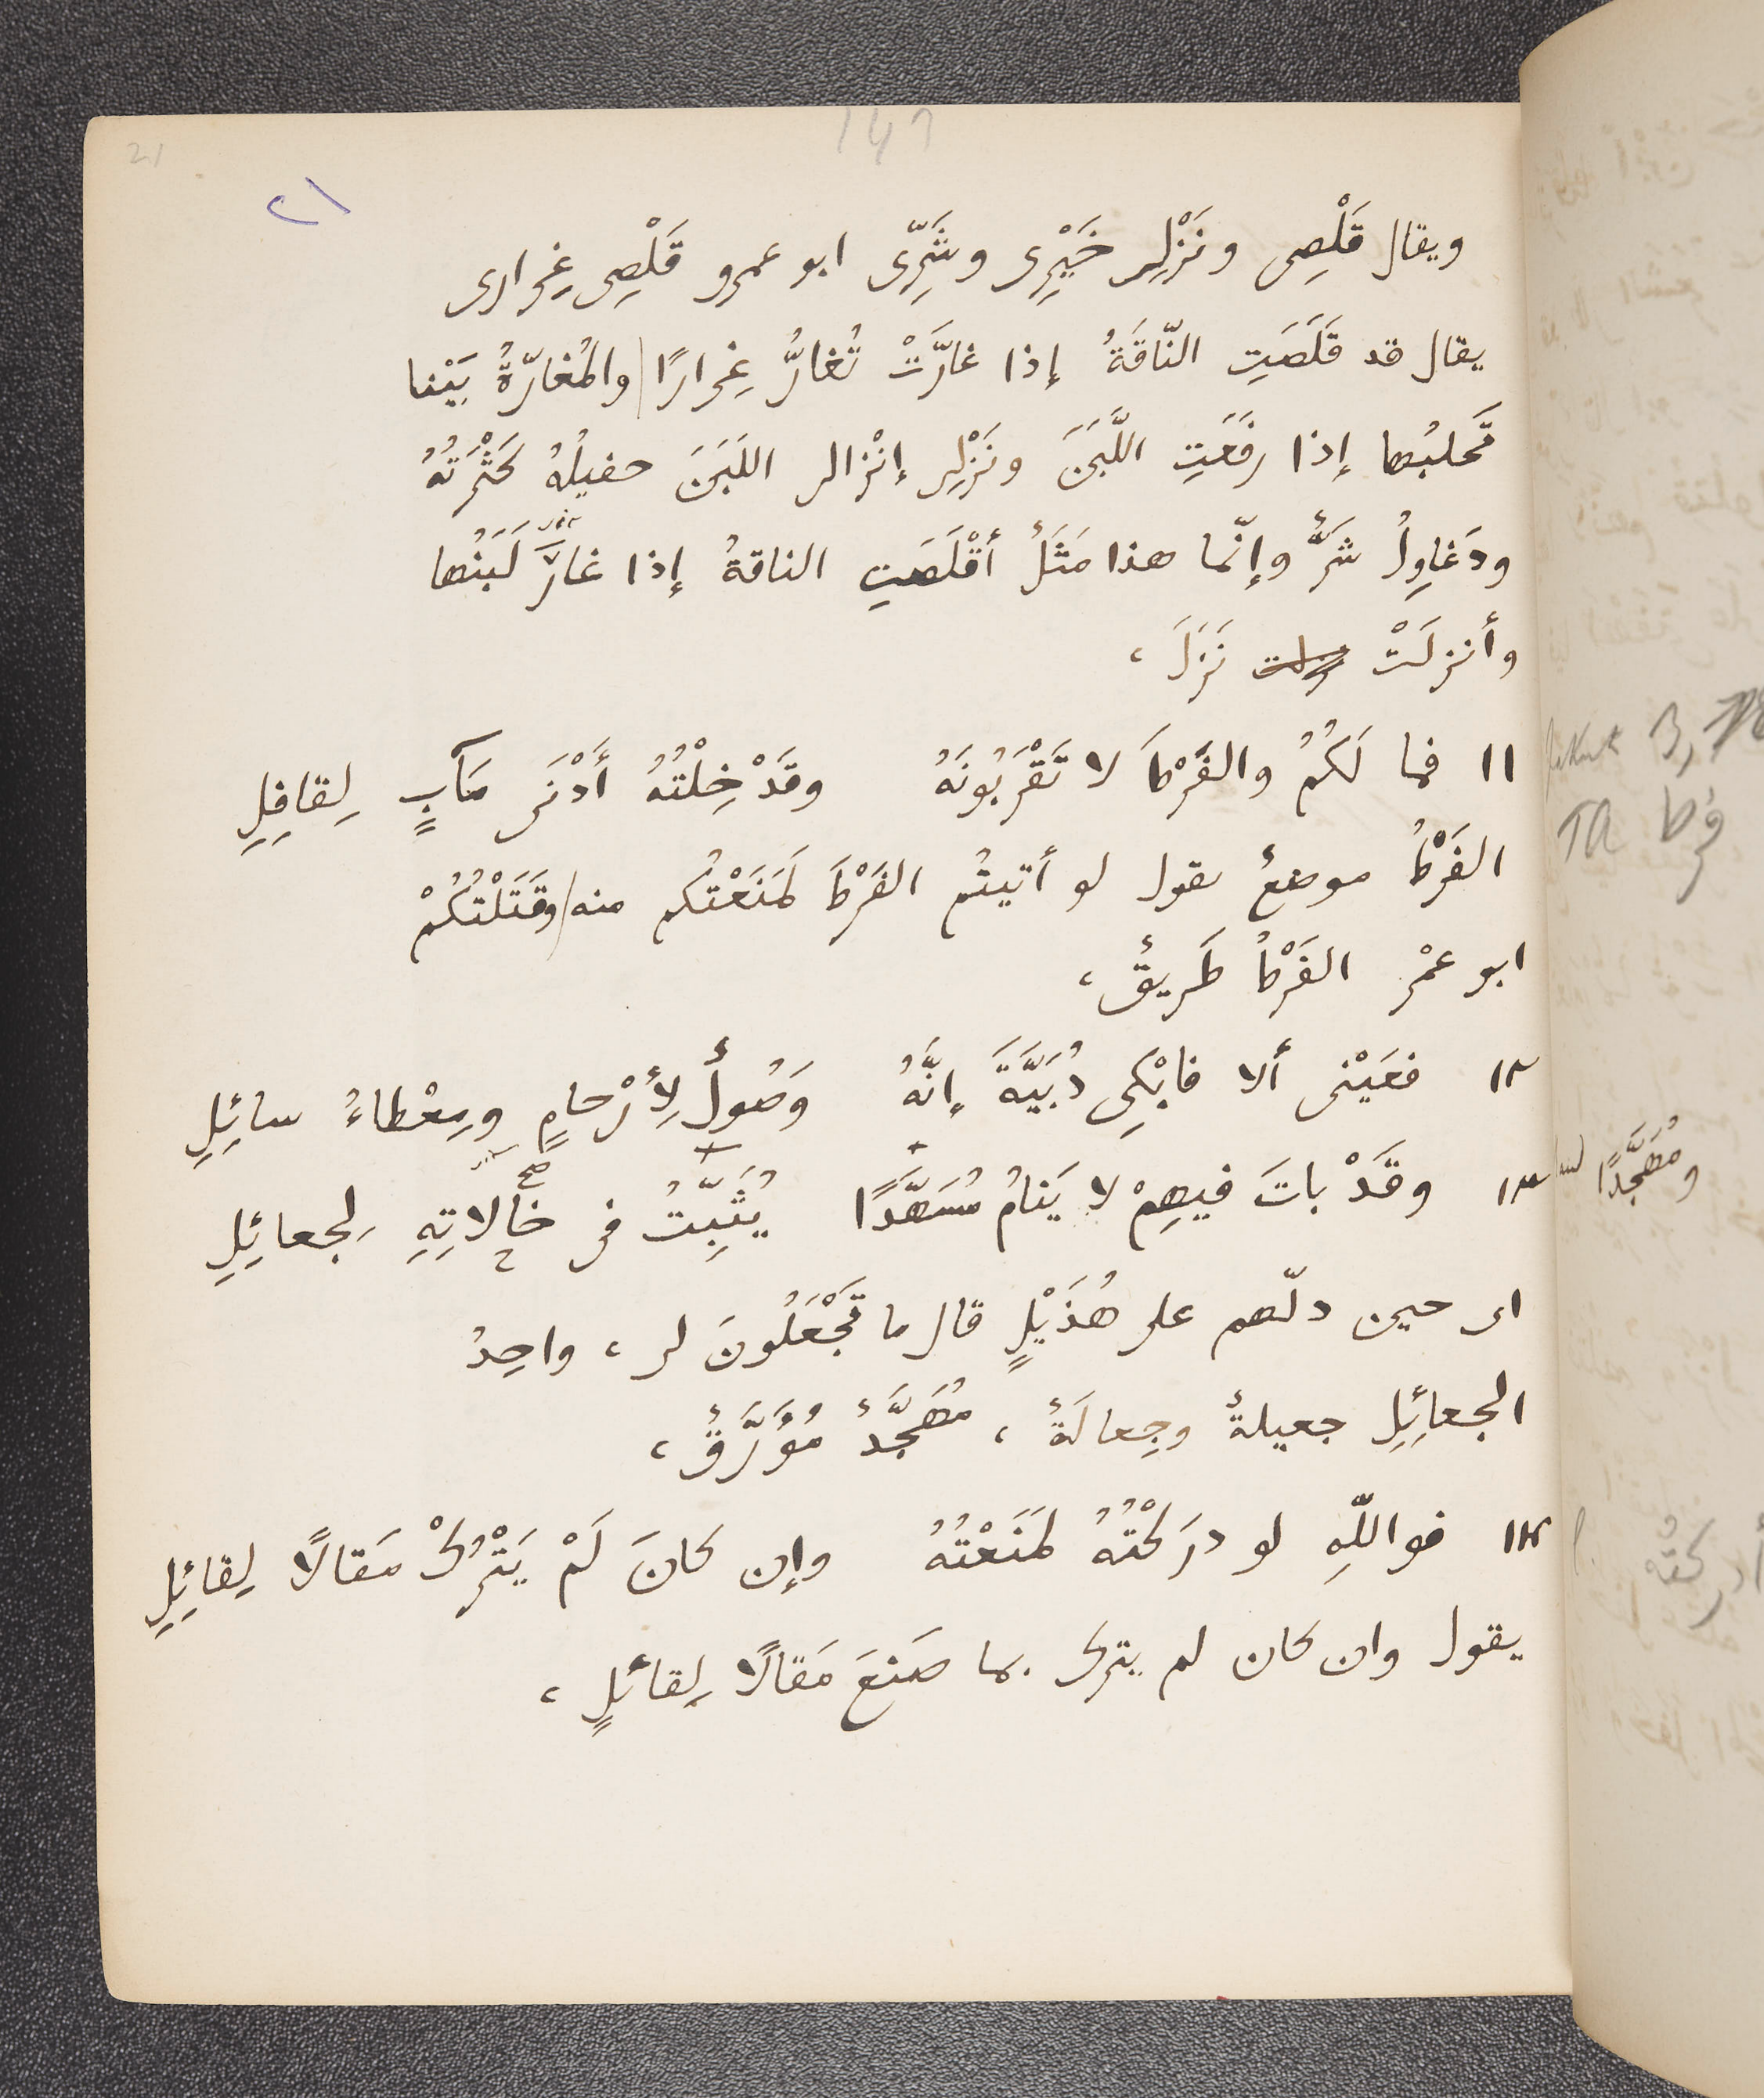 147
21
٢١
ويقال قَلْصِى ونَزْلِى خَيْرِى وشَرِّى ابو عمرو قَلْصِى غِرارى
يقال قد قَلَصَتِ النّاقَةُ إذا غارَّتْ تُغارُّ غِرارًا والمُغارّةُ بَيْنا
تَحلبُها إذا رفَعَتِ اللَّبَنَ ونَزْلِى إنْزالى اللَبَنَ حفيلُهُ كَثْرَتُهُ
ودَغاوِلُ شَرٌّ وإنّما هذا مَثَلٌ أقْلَصَتِ الناقةُ إذا غارَّ لَبَنُها
وأنزلَتْ نَزَلَ ،
١١ فما لَكُمُ والفَرْطَ لا تَقْرَبُونَهُ وقَدْ خِلْتُهُ أَدْنَى مَآبٍ لِقافِلِ
الفَرْطُ موضعٌ يقول لو أتيتُم الفَرْطَ لمَنَعْتُكم منه وقَتَلْتُكُمْ
ابو عمْر الفَرْطُ طَريقٌ ،
١٢ فعَيْنى ألا فابْكِى دُبَيَّةَ إنَّهُ وَصُولٌ لِأرْحامٍ ومِعْطاءُ سائِلِ
١٣ وقَدْ باتَ فيهِمْ لا يَنامُ مُسَهَّدًا يُثَبِّتُ فى خالاتِهِ لجعائِلِ
صح
ومُهَجَّدًا
اى حين دلّهم على هُذَيْلٍ قال ما تَجْعَلُونَ لى ، واحِدُ
الجعائِلِ جعيلةٌ وجِعالَةٌ ، مُهَجَّدٌ مُؤَرَّقٌ ،
١٤ فواللّهِ لو درَكْتُهُ لمَنَعْتُهُ وإن كانَ لَمْ يَتْرُكْ مَقالًا لِقائِلِ
أدركتُه
يقول وان كان لم يترك بما صَنعَ مَقالًا لِقائلٍ ،
TA فرط